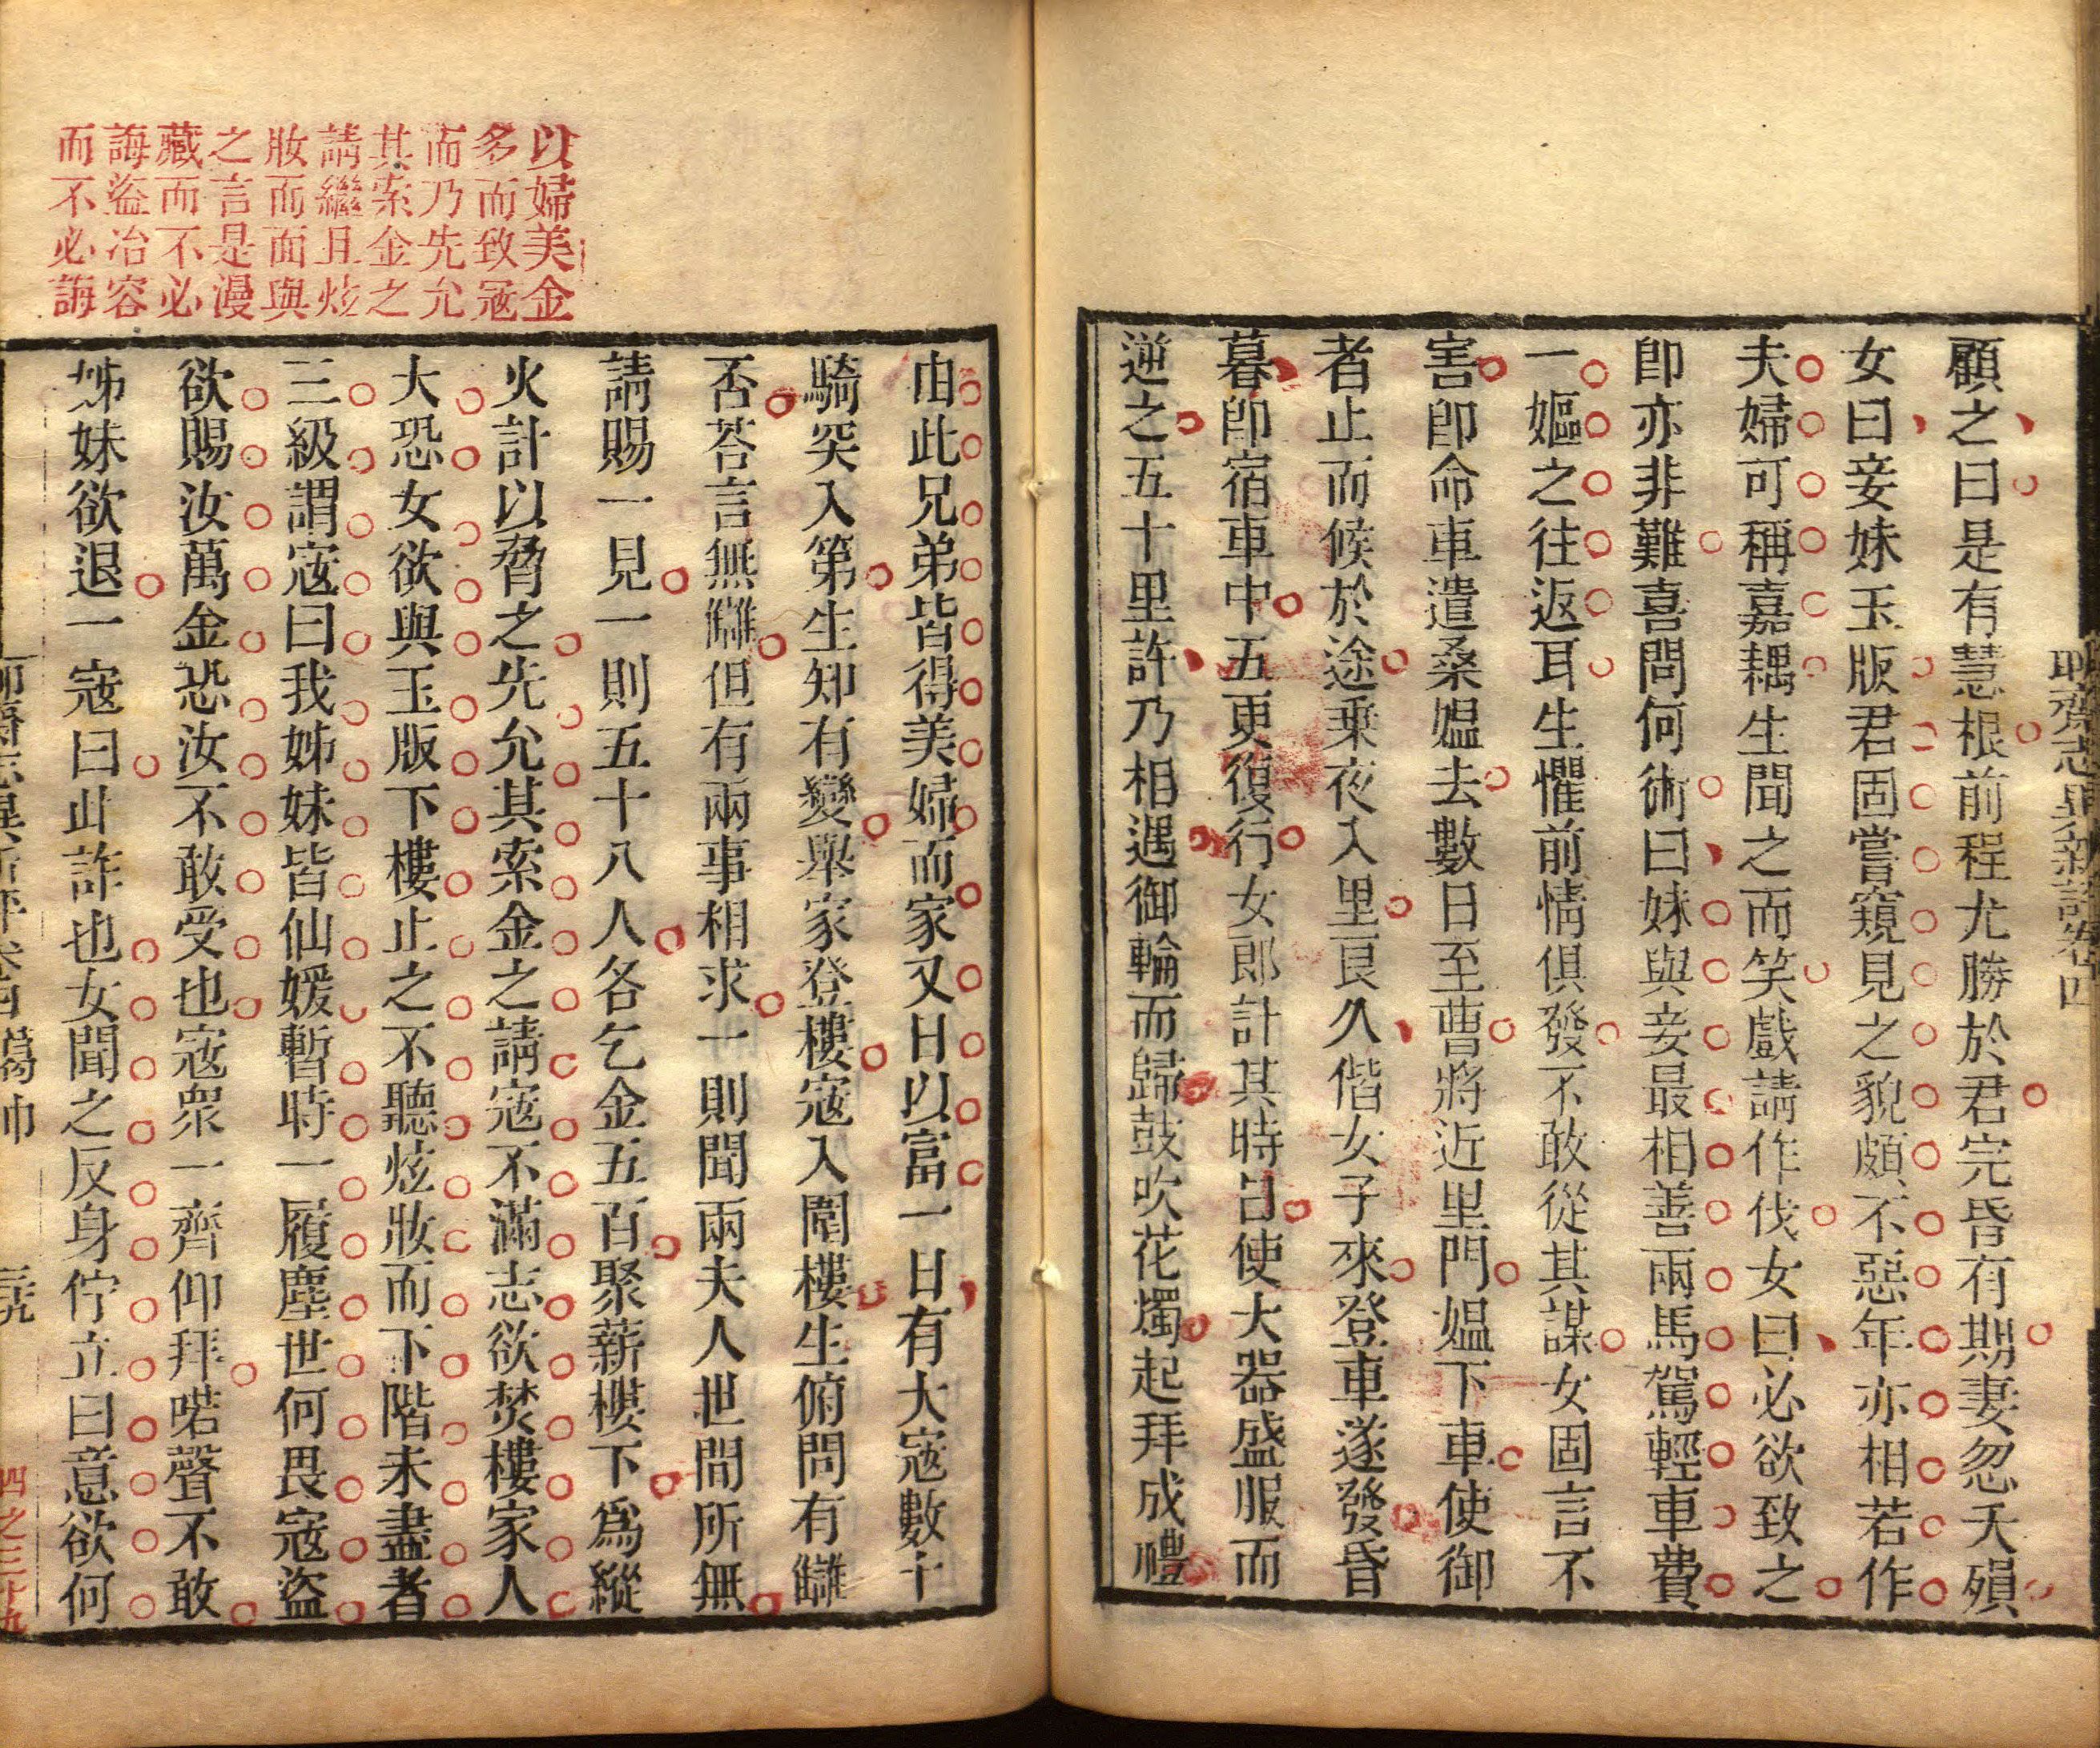 聊齋志異新評卷四
顧之曰是有慧根前程尤勝於君完昏有期妻忽夭殞
女曰妾妹玉版君固嘗窺見之貌頗不惡年亦相若作
夫婦可稱嘉耦生聞之而笑戲請作伐女曰必欲致之
卽亦非難喜問何術曰妹與妾最相善兩馬駕輕車費
一嫗之往返耳生懼前情俱發不敢從其謀女固言不
害卽命車遣桑媼去數日至曹將近里門媼下車使御
者止而候於途乘夜入里良久偕女子來登車遂發昏
暮卽宿車中五更復行女郎計其時日使大器盛服而
逆之五十里許乃相遇御輪而歸鼓吹花燭起拜成禮
以婦美金
多而致寇
而乃先允
其索金之
請繼且炫
妝而面與
之言是漫
藏而不必
誨盜冶容
而不必誨
由此兄弟皆得美婦而家又日以富一日有大寇數十
騎突入第生知有變舉家登樓寇入圍樓生俯問有讎
否荅言無讎但有兩事相求一則聞兩夫人世間所無
請賜一見一則五十八人各乞金五百聚薪樓下爲縱
火計以脅之先允其索金之請寇不滿志欲焚樓家人
大恐女欲與玉版下樓止之不聽炫妝而下階未盡者
三級謂寇曰我姊妹皆仙媛暫時一履塵世何畏寇盜
欲賜汝萬金恐汝不敢受也寇眾一齊仰拜喏聲不敢
姊妹欲退一寇曰此詐也女聞之反身佇立曰意欲何
聊齋志異新評卷四 葛巾 三九
四之三十九